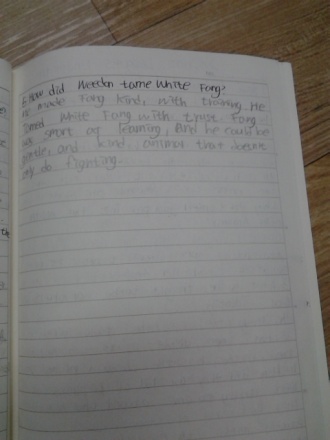 How did Weedon tame White Fang?
he made Fang kind, with training. He
tamed White Fang with trust. Fang
was smart at learning, And he could be
gentle, and kind, animal that doesnt
only do fighting.